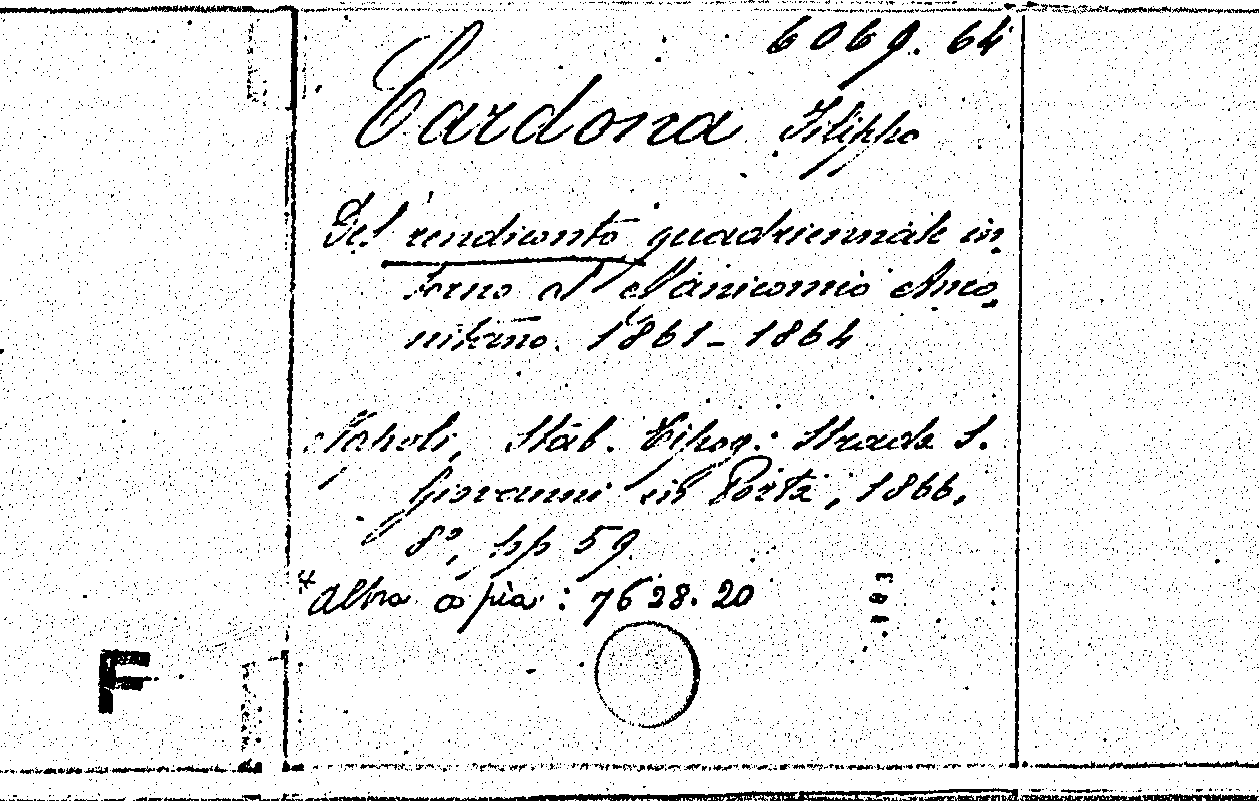 6069. 64
Cardona Filippo
Del rendiconto quadriennale in-
torno al Manicomio Anco-
nitano. 1861-1864
Napoli, Stab. Tipog: Strada S.
Giovanni in Porta, 1866.
8°, pp 59
*Altra copia: 7628.20
F